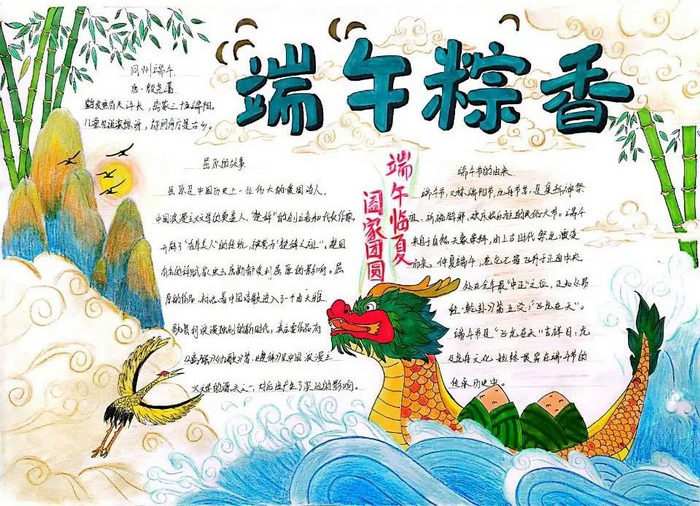 端午粽香
同州端午
唐·殷尧藩
鹤发垂肩尺许长，离家三十五端阳。
儿童见说深惊讶，却问何方是故乡。
屈原的故事
屈原是中国历史上一位伟大的爱国诗人，
中国浪漫主义文学的奠基人，"楚辞"的创立者和代表作家，
开辟了"香草美人"的传统，被誉为"楚辞之祖"，楚国
有名的辞赋家宋玉、唐勒、景差都受到屈原的影响。屈
原的作品，标志着中国诗歌进入了一个由大雅
歌唱到浪漫独创的新时代，其主要作品有
《离骚》《九歌》
对后世产生了深远的影响。
端午临夏
阖家团圆
端午节的由来
端午节，又称端阳节、龙舟节等，是集拜神祭
祖、祈福辟邪、欢庆娱乐 民俗大节。端午
来自于自然天象崇拜，由上古时代祭龙演变
而来。仲夏端午，苍龙七宿飞升于正南中央，
处在全年最"中正"之位，正如《易
经·乾卦》第五爻："飞龙在天"。
端午节是"飞龙在天"吉祥日，龙
及龙舟文化始终贯穿在端午节的
传承历史中。